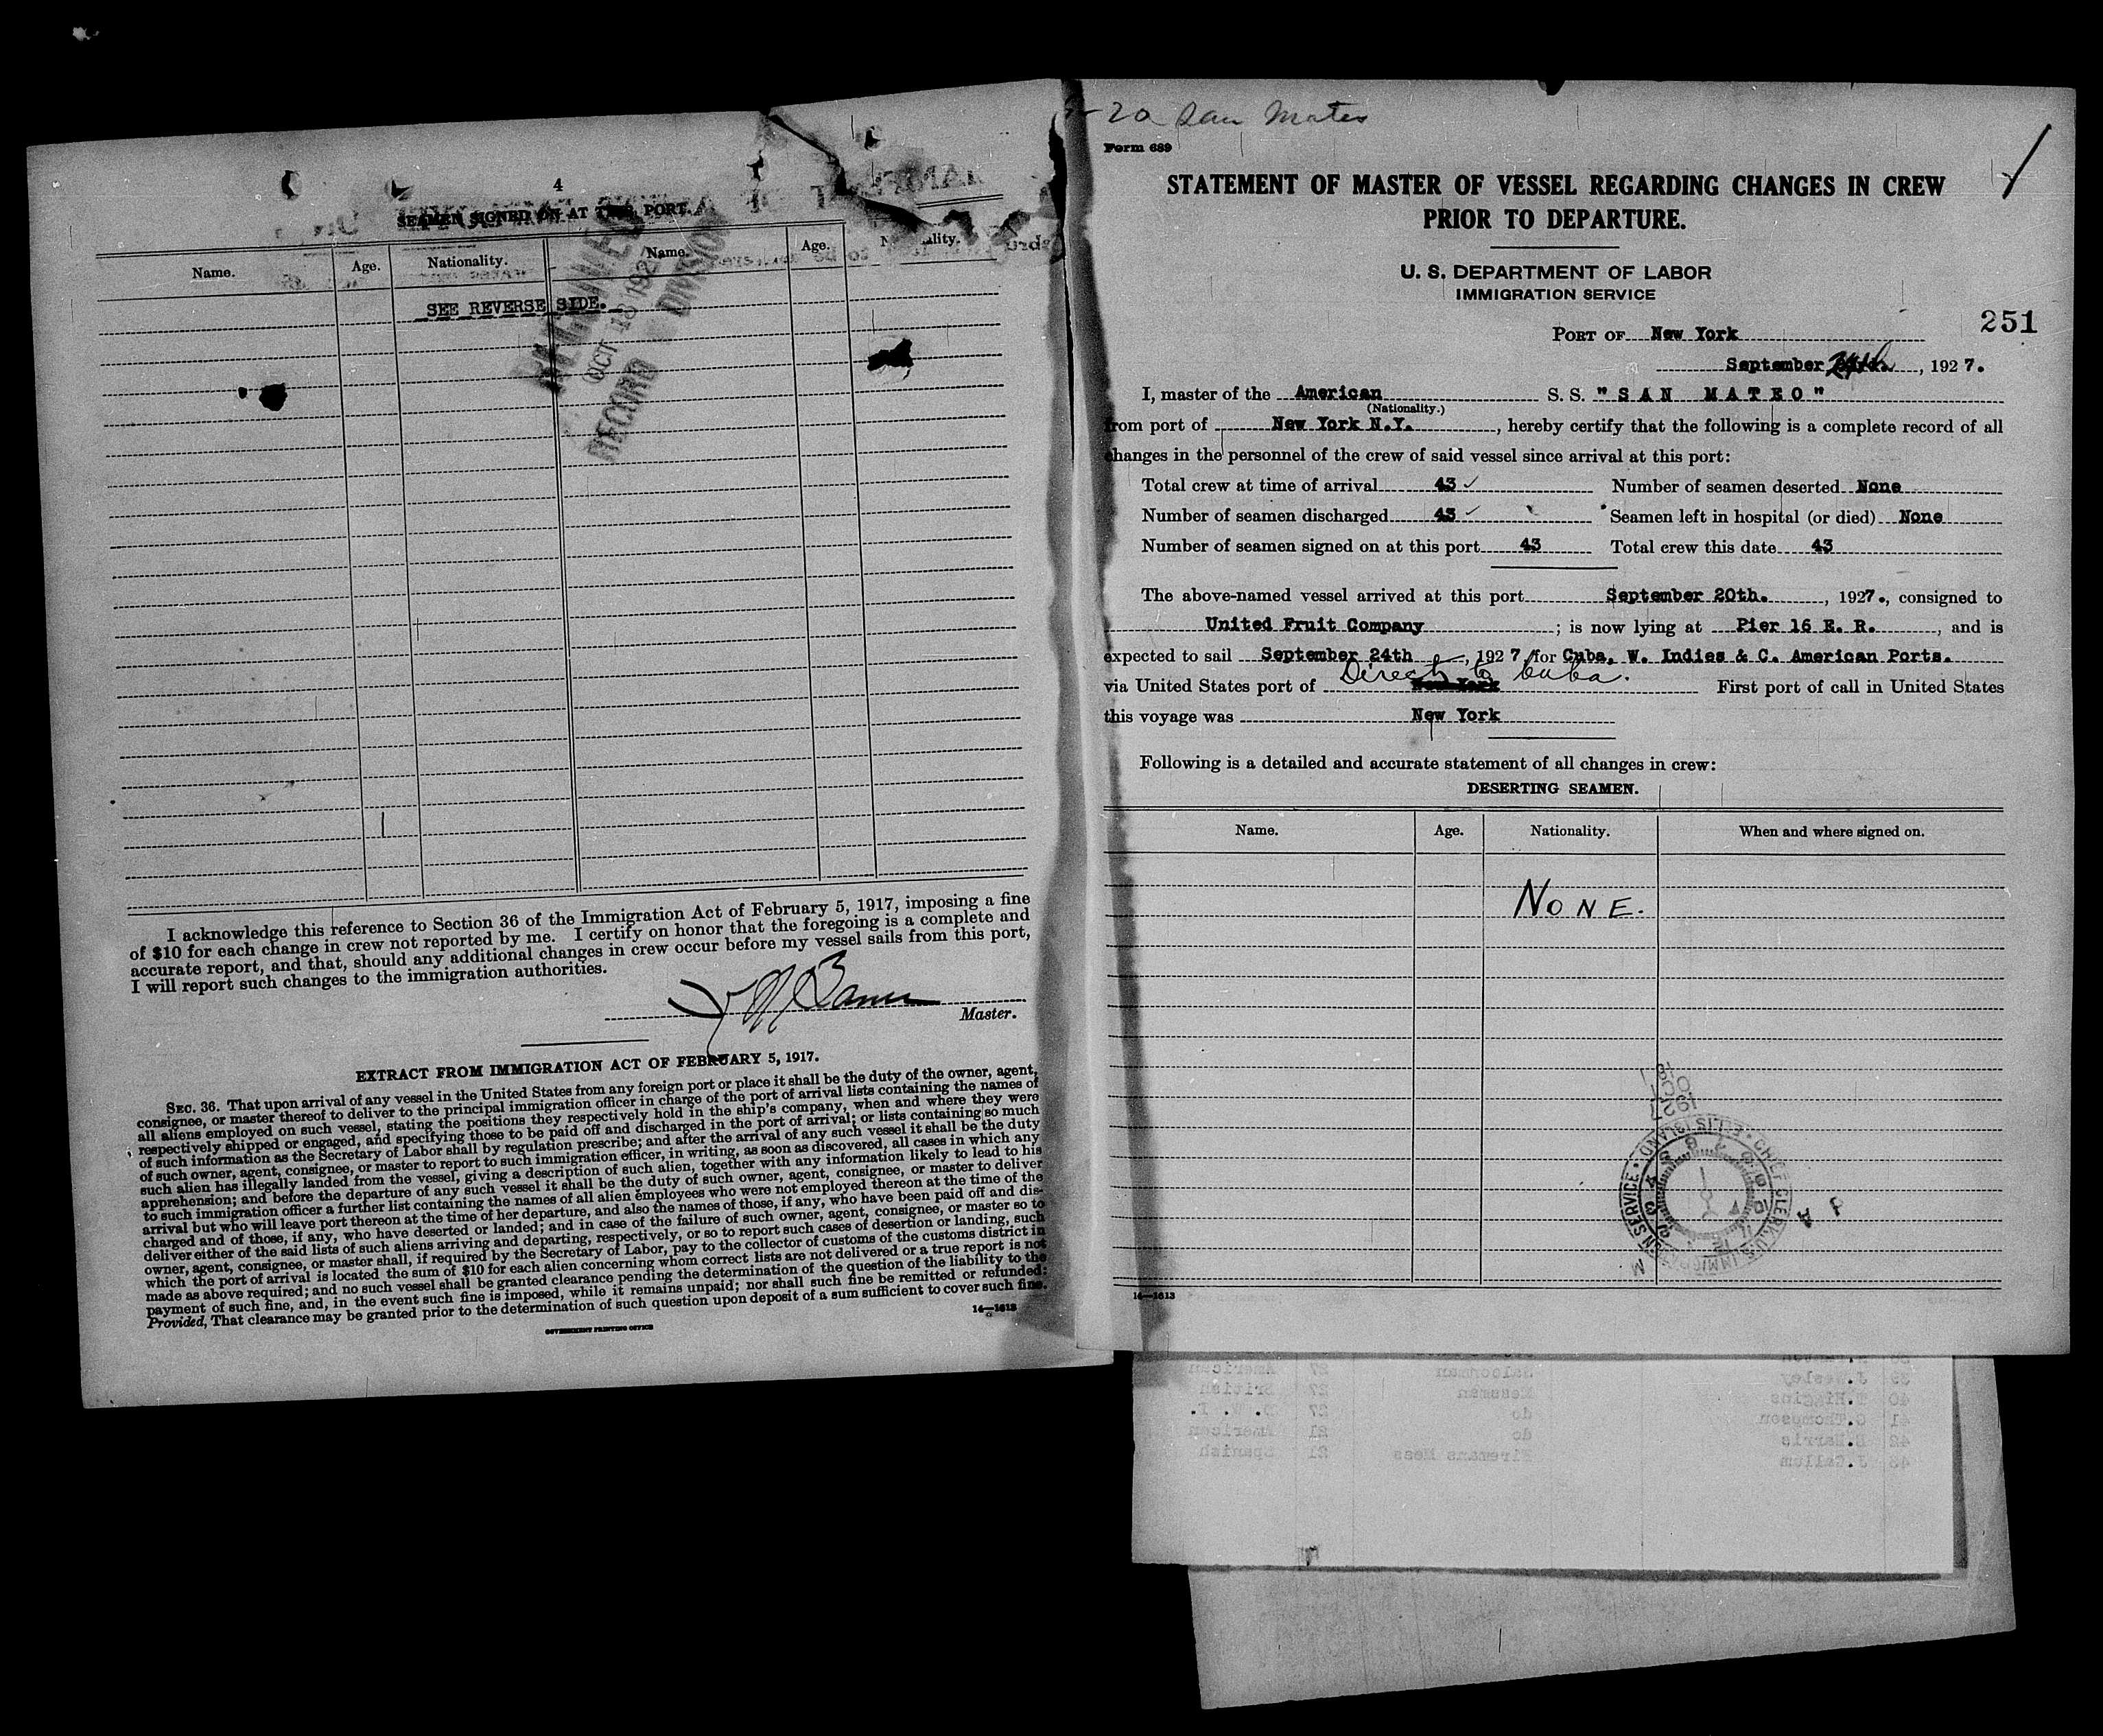 4
SEAMEN SIGNED ON AT THIS PORT.
Name. Age. Nationality. Name. Age. Nationality.
SEE REVERSE SIDE.
OCT 18 192
RECORD DIVISION
I acknowledge this reference to Section 36 of the Immigration Act of February 5, 1917, imposing a fine
of $10 for each change in crew not reported by me. I certify on honor that the foregoing is a complete and
accurate report, and that, should any additional changes in crew occur before my vessel sails from this port,
I will report such changes to the immigration authorities.
Master.
EXTRACT FROM IMMIGRATION ACT OF FEBRUARY 5, 1917.
SEC. 36. That upon arrival of any vessel in the United States from any foreign port or place it shall be the duty of the owner, agent,
consignee, or master thereof to deliver to the principal immigration officer in charge of the port of arrival lists containing the names of
all aliens employed on such vessel, stating the positions they respectively hold in the ship's company, when and where they were
respectively shipped or engaged, and specifying those to be paid off and discharged in the port of arrival; or lists containing so much
of such information as the Secretary of Labor shall by regulation prescribe; and after the arrival of any such vessel it shall be the duty
of such owner, agent, consignee, or master to report to such immigration officer, in writing, as soon as discovered, all cases in which any
such alien has illegally landed from the vessel, giving a description of such alien, together with any information likely to lead to his
apprehension; and before the departure of any such vessel it shall be the duty of such owner, agent, consignee, or master to deliver
to such immigration officer a further list containing the names of all alien employees who were not employed thereon at the time of the
arrival but who will leave port thereon at the time of her departure, and also the names of those, if any, who have been paid off and dis-
charged and of those, if any, who have deserted or landed; and in case of the failure of such owner, agent, consignee, or master so to
deliver either of the said lists of such aliens arriving and departing, respectively, or so to report such cases of desertion or landing, such
owner, agent, consignee, or master shall, if required by the Secretary of Labor, pay to the collector of customs of the customs district in
which the port of arrival is located the sum of $10 for each alien concerning whom correct lists are not delivered or a true report is not
made as above required; and no such vessel shall be granted clearance pending the determination of the question of the liability to the
payment of such fine, and, in the event such fine is imposed, while it remains unpaid; nor shall such fine be remitted or refunded:
Provided, That clearance may be granted prior to the determination of such question upon deposit of a sum sufficient to cover such fine.
14—1613
GOVERNMENT PRINTING OFFICE
20 San Mateo
Form 689
STATEMENT OF MASTER OF VESSEL REGARDING CHANGES IN CREW
PRIOR TO DEPARTURE.
U. S. DEPARTMENT OF LABOR
IMMIGRATION SERVICE
251
PORT OF New York
September 24th, 1927.
I, master of the American S. S. "SAN MATEO"
(Nationality.)
from port of New York N.Y., hereby certify that the following is a complete record of all
changes in the personnel of the crew of said vessel since arrival at this port:
Total crew at time of arrival 43 ✓ Number of seamen deserted None
Number of seamen discharged 43 ✓ Seamen left in hospital (or died) None
Number of seamen signed on at this port 43 Total crew this date 43
The above-named vessel arrived at this port September 20th., 1927., consigned to
United Fruit Company; is now lying at Pier 16 E. R., and is
expected to sail September 24th, 1927, for Cuba, W. Indies & C. American Ports.
via United States port of New York Direct to Cuba. First port of call in United States
this voyage was New York
Following is a detailed and accurate statement of all changes in crew:
DESERTING SEAMEN.
Name. Age. Nationality. When and where signed on.
NONE.
14—1613
39 J.Wesley 27 American
40 T.Higgins Messman 27 British
41 C.Thompson do 27
42 B.Harris do 21 American
43 J.Callum Firemans Mess 21 Spanish